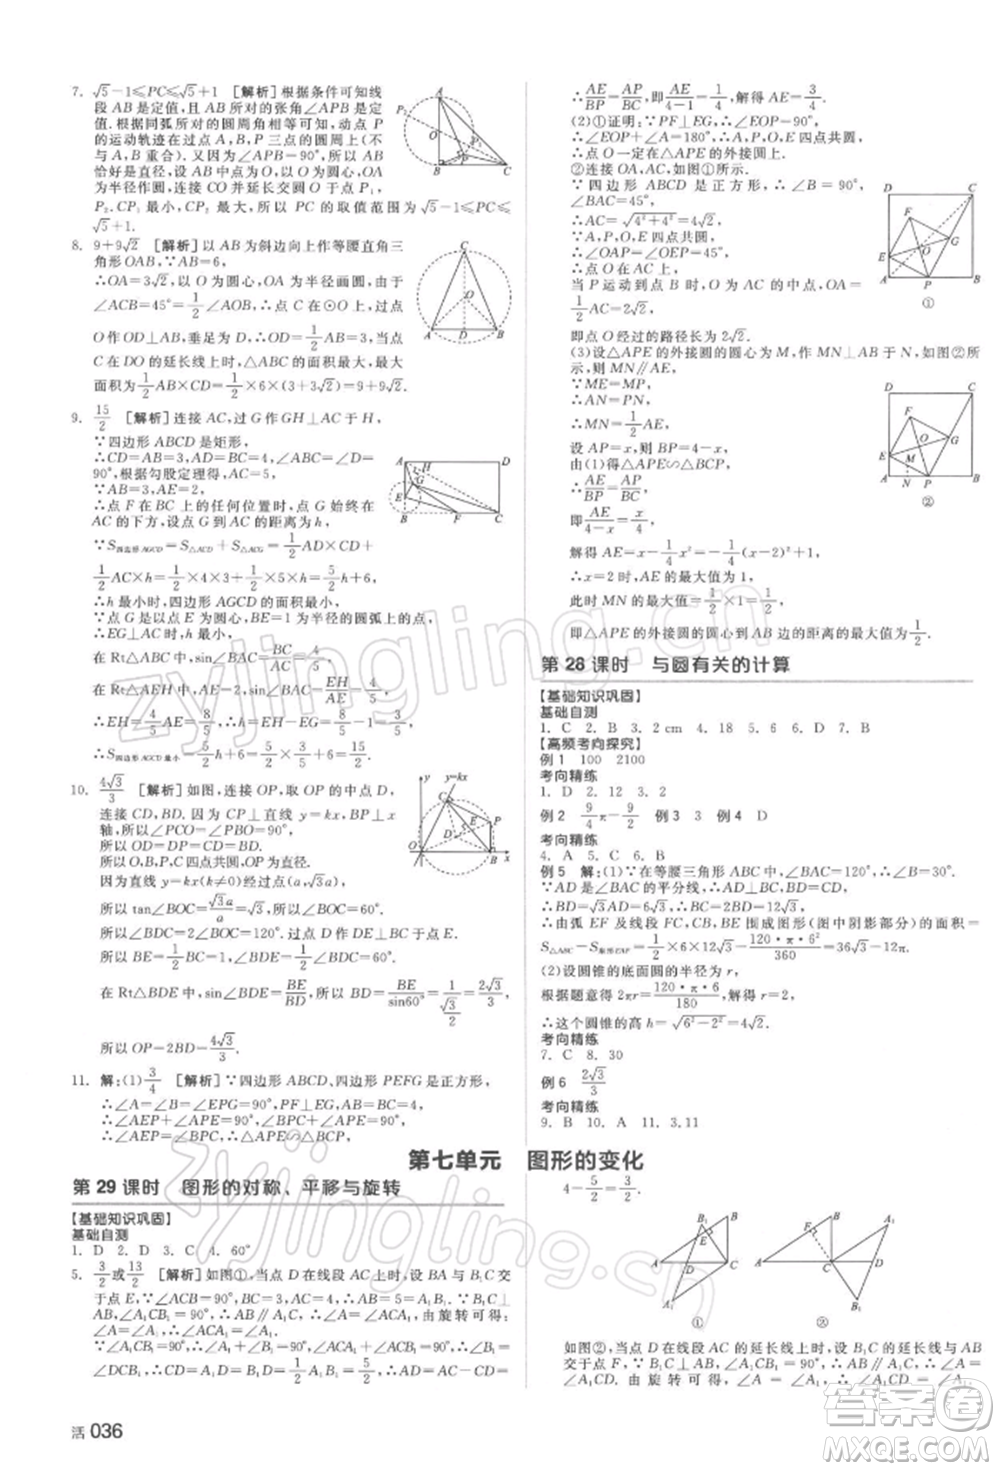 7. √5-1≤PC≤√5+1 [解析]根据条件可知线
段 AB 是定值,且 AB 所对的张角∠APB 是定
值.根据同弧所对的圆周角相等可知,动点 P
的运动轨迹在过点 A,B,P 三点的圆周上(不
与 A,B 重合).又因为∠APB=90°,所以 AB
恰好是直径,设 AB 的中点为 O,以 O 为圆心,OA
为半径作圆,连接 CO 并延长交圆 O 于点 P₁,
P₂,CP₂ 最小,CP₁ 最大,所以 PC 的取值范围为√5-1≤PC≤
√5+1.
8. 9+9√2 [解析]以 AB 为斜边向上作等腰直角三
角形 OAB,∵AB=6,
∴OA=3√2,以 O 为圆心,OA 为半径画圆,∵
∠ACB=45°=1/2∠AOB,∴点 C 在⊙O 上,过点
O 作 OD⊥AB,垂足为 D,∴OD=1/2AB=3.当点
C 在 DO 的延长线上时,△ABC 的面积最大,最
大面积为1/2AB×CD=1/2×6×(3+3√2)=9+9√2.
9. 15/2 [解析]连接 AC,过 G 作 GH⊥AC 于 H,
∵四边形 ABCD 是矩形,
∴AB=CD=3,AD=BC=4,∠B=∠D=
90°,根据勾股定理得,AC=5,
∵AB=3,AE=2,
∴点 F 在 BC 上的任何位置时,点 G 始终在
AC 的下方,设点 G 到 AC 的距离为 h,
∵S四边形AGCD=S△ACD+S△ACG=1/2AD×CD+
1/2AC×h=1/2×4×3+1/2×5×h=5/2h+6,
∴h 最小时,四边形 AGCD 的面积最小.
∵点 G 是以点 E 为圆心,BE=1 为半径的圆弧上的点,
∴EG⊥AC 时,h 最小.
在 Rt△ABC 中,sin∠BAC=BC/AC=4/5,
在 Rt△AEH 中,AE=2,sin∠BAC=EH/AE=4/5,
∴EH=4/5AE=8/5,∴h=EH-EG=8/5-1=3/5,
∴S四边形AGCD最小=5/2h+6=5/2×3/5+6=15/2.
10. 4√3/3 [解析]如图,连接 OP,取 OP 的中点 D,
连接 CD,BD.因为 CP⊥直线 y=kx,BP⊥x
轴,所以∠PCO=∠PBO=90°,
所以 OD=DP=CD=BD,
所以O,B,P,C 四点共圆,OP 为直径.
因为直线 y=kx(k>0)的图象经过点 C(a,√3a)(a>0),
所以 tan∠BOC=√3a/a=√3,所以∠BOC=60°,
所以∠BDC=2∠BOC=120°.过点 D 作 DE⊥BC 于点 E,
所以 BE=1/2BC=1,∠BDE=1/2∠BDC=60°.
在 Rt△BDE 中,sin∠BDE=BE/BD,所以 BD=BE/sin60°=1/(√3/2)=2√3/3,
所以 OP=2BD=4√3/3.
11. 解:(1)3/4 [解析]∵四边形 ABCD,四边形 PEFG 是正方形,
∴∠A=∠B=∠EPG=90°,PF⊥EG,AB=BC=4,∠OEP=45°,
∴∠AEP+∠APE=90°,∠BPC+∠APE=90°,
∴∠AEP=∠BPC,∴△APE∽△BCP,
∴AE/BP=AP/BC,即AE/(4-1)=1/4,解得 AE=3/4.
(2)①证明:∵PF⊥EG,∴∠EOP=90°,
∴∠EOP+∠A=180°,∴A,P,O,E 四点共圆,
∴点 O 一定在△APE 的外接圆上.
②连接 OA,AC,如图①所示.
∵四边形 ABCD 是正方形,∴∠B=90°,
∠BAC=45°,
∴AC=√(4²+4²)=4√2,
∵A,P,O,E 四点共圆,
∴∠OAP=∠OEP=45°,
∴点 O 在 AC 上.
当 P 运动到点 B 时,O 为 AC 的中点,OA=
1/2AC=2√2,
即点 O 经过的路径长为2√2.
(3)设△APE 的外接圆的圆心为 M,作 MN⊥AB 于 N,如图②所
示,则 MN∥AE,
∵ME=MP,
∴AN=PN,
∴MN=1/2AE.
设 AP=x,则 BP=4-x,
由(1)得△APE∽△BCP,
∴AE/BP=AP/BC,
即AE/(4-x)=x/4,
解得 AE=x-1/4x²=-1/4(x-2)²+1,
∴x=2 时,AE 的最大值为 1,
此时 MN 的值最大=1/2×1=1/2,
即△APE 的外接圆的圆心到 AB 边的距离的最大值为1/2.
第 28 课时 与圆有关的计算
【基础知识巩固】
基础自测
1. C 2. B 3. 2 cm 4. 18 5. 6 6. D 7. B
【高频考向探究】
例 1 100 2100
考向精练
1. D 2. 12 3. 2
例 2 9/4π-9/4 例 3 C 例 4 D
考向精练
4. A 5. C 6. B
例 5 解:(1)∵在等腰三角形 ABC 中,∠BAC=120°,∴∠B=30°.
∵AD 是∠BAC 的平分线,∴AD⊥BC,BD=CD,
∴BD=√3AD=6√3,∴BC=2BD=12√3,
∴由弧 EF 及线段 FC,CB,BE 围成图形(图中阴影部分)的面积=
S△ABC-S扇形EAF=1/2×6×12√3-120·π·6²/360=36√3-12π.
(2)设圆锥的底面圆的半径为 r,
根据题意得 2πr=120·π·6/180,解得 r=2,
∴这个圆锥的高 h=√(6²-2²)=4√2.
考向精练
7. C 8. 30
例 6 2√3/3
考向精练
9. B 10. A 11. 3,11
第七单元 图形的变化
第 29 课时 图形的对称、平移与旋转
【基础知识巩固】
基础自测
1. D 2. D 3. C 4. 60°
5. 3/2或13/2 [解析]如图①,当点 D 在线段 AC 上时,设 BA 与 B₁C 交
于点 E,∵B₁D⊥AB,
∴∠DCB₁=∠A₁,∴CD=A₁D=B₁D=1/2A₁B₁=5/2,∴AD=AC-CD=
4-5/2=3/2.
① ②
如图②,当点 D 在线段 AC 的延长线上时,∵B₁D⊥AB
交于点 F,
∠A₁CD.
活 036
zyjingling.cn
答案圈
MXQE.COM